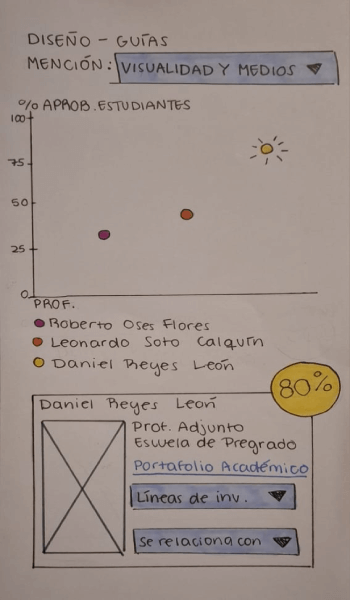 DISEÑO - GUÍAS
MENCIÓN: VISUALIDAD Y MEDIOS
% APROB. ESTUDIANTES
100
75
50
25
0
PROF.
Roberto Oses Flores
Leonardo Soto Calquín
Daniel Reyes León
80%
Daniel Reyes León
Prof. Adjunto
Escuela de Pregrado
Portafolio Académico
Líneas de inv.
Se relaciona con